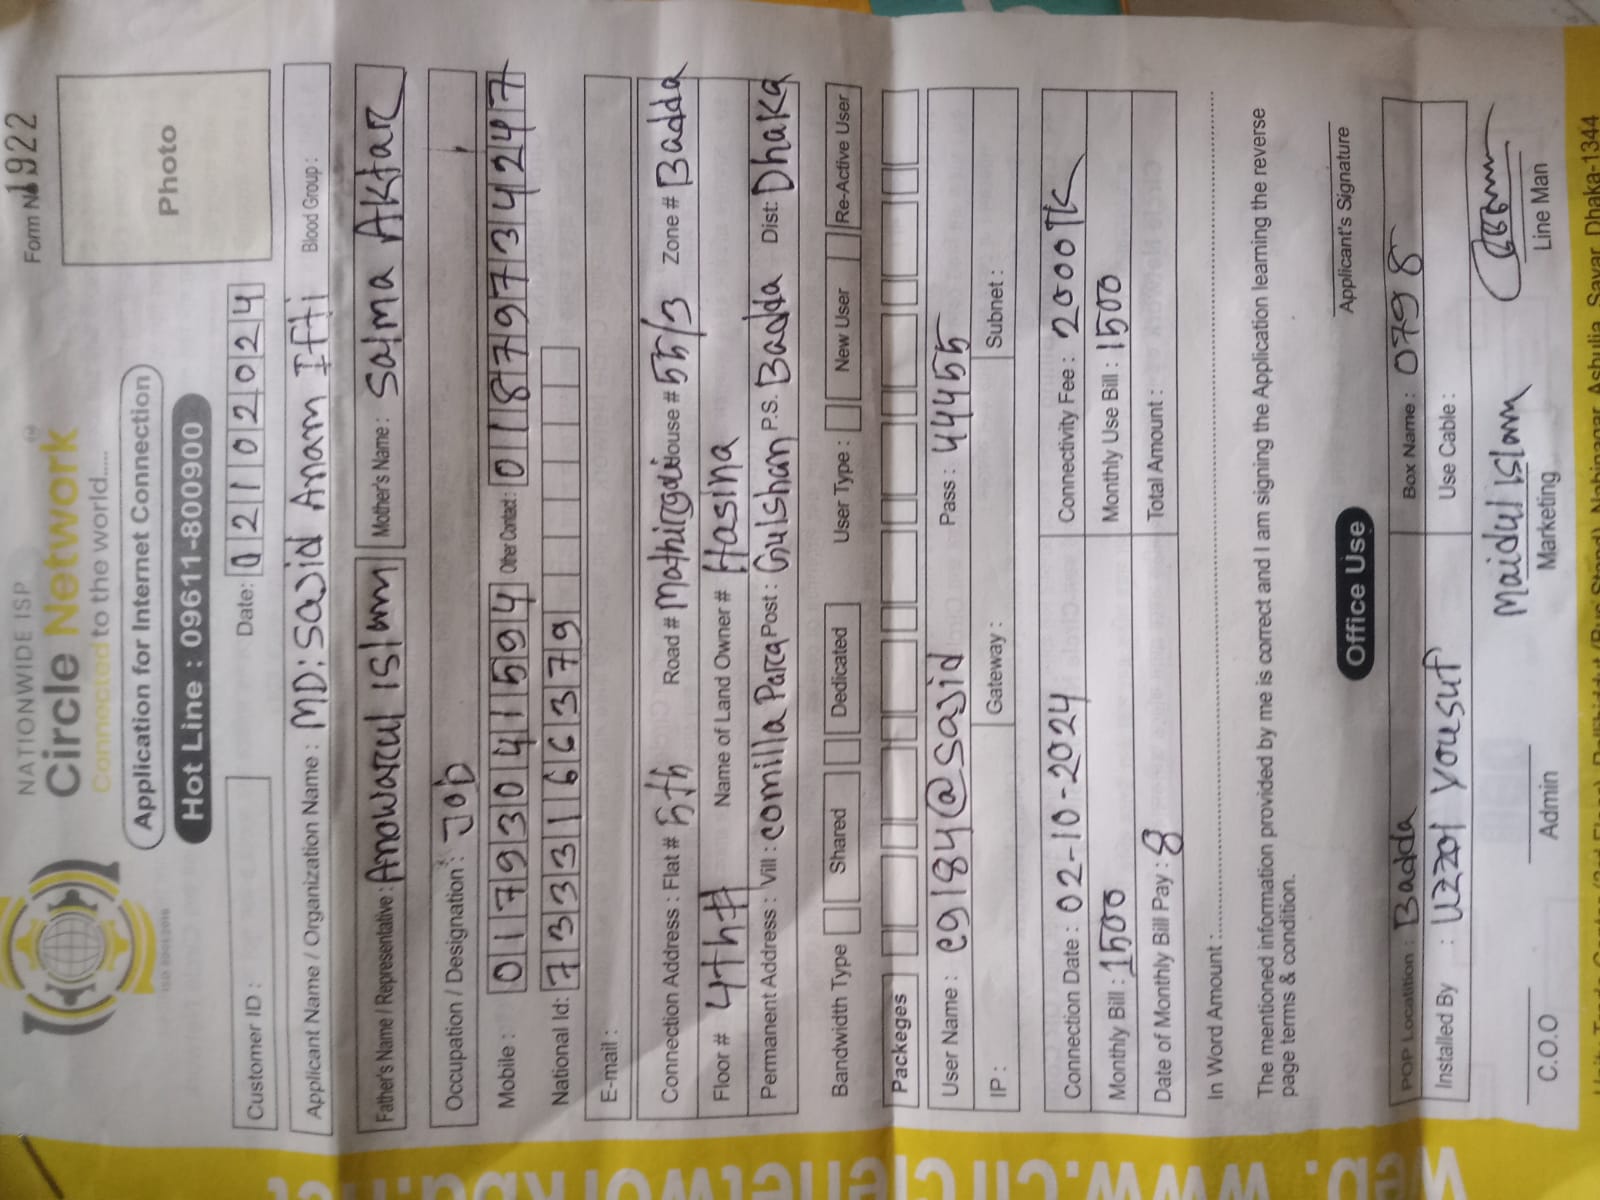 Form No 1922
NATIONWIDE ISP
Circle Network
Connected to the world.....
Application for Internet Connection
Hot Line : 09611-800900
Photo
Customer ID :
Date: 02102024
Applicant Name / Organization Name : MD: Sajid Anam Ifti Blood Group :
Father's Name / Representative : Anowarul Islam Mother's Name : Salma Aktar
Occupation / Designation : Job
Mobile : 01793041594 Other Contact : 01879734247
National Id: 7333166379
E-mail :
Connection Address : Flat # 5th Road # House # 55/3 Zone # Badda
Floor # 4th Name of Land Owner # Hasina
Permanent Address : Vill : Comilla Para Post : Gulshan P.S. Badda Dist: Dhaka
Bandwidth Type Shared Dedicated User Type : New User Re-Active User
Packeges
User Name : c9184@sajid Pass : 44455
IP : Gateway : Subnet :
Connection Date : 02-10-2024 Connectivity Fee : 2000 TK
Monthly Bill : 1500 Monthly Use Bill : 1500
Date of Monthly Bill Pay : 8 Total Amount :
In Word Amount :
The mentioned information provided by me is correct and I am signing the Application learning the reverse
page terms & condition.
Applicant's Signature
Office Use
POP Locatition : Badda Box Name : 0798
Installed By : Uzzol Yousuf Use Cable :
Maidul Islam
C.O.O Admin Marketing Line Man